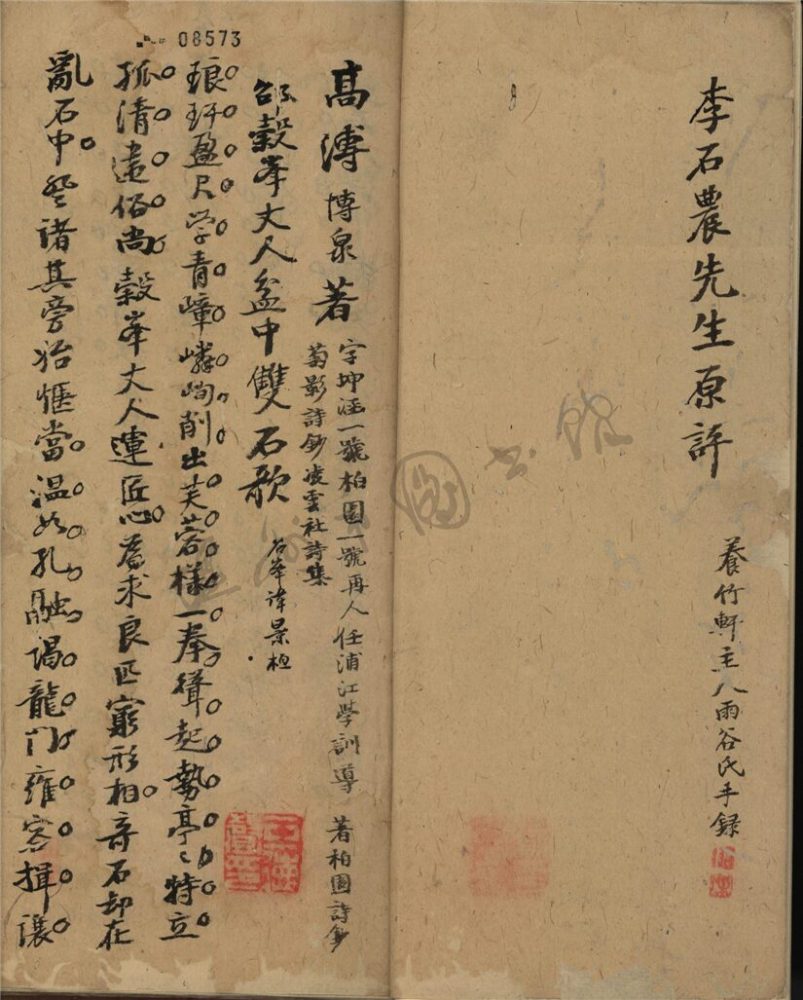 李石農先生原評
養竹軒主人雨谷氏手錄
08573
高溥博泉著
字坤涵一號柏園一號再人任浦江學訓導 著柏園詩鈔
菊影詩鈔凌雲社詩集
邰穀峯丈人盆中雙石歌
石峯諱景極
琅玕盈尺學青嶂嶙峋削出芙蓉樣一拳聳起勢亭〻特立
孤清違俗尚穀峯丈人運匠心為求良匹窮形相奇石却在
亂石中登諸其旁殆愜當溫如孔融謁龍門雍容揖讓
圖書館